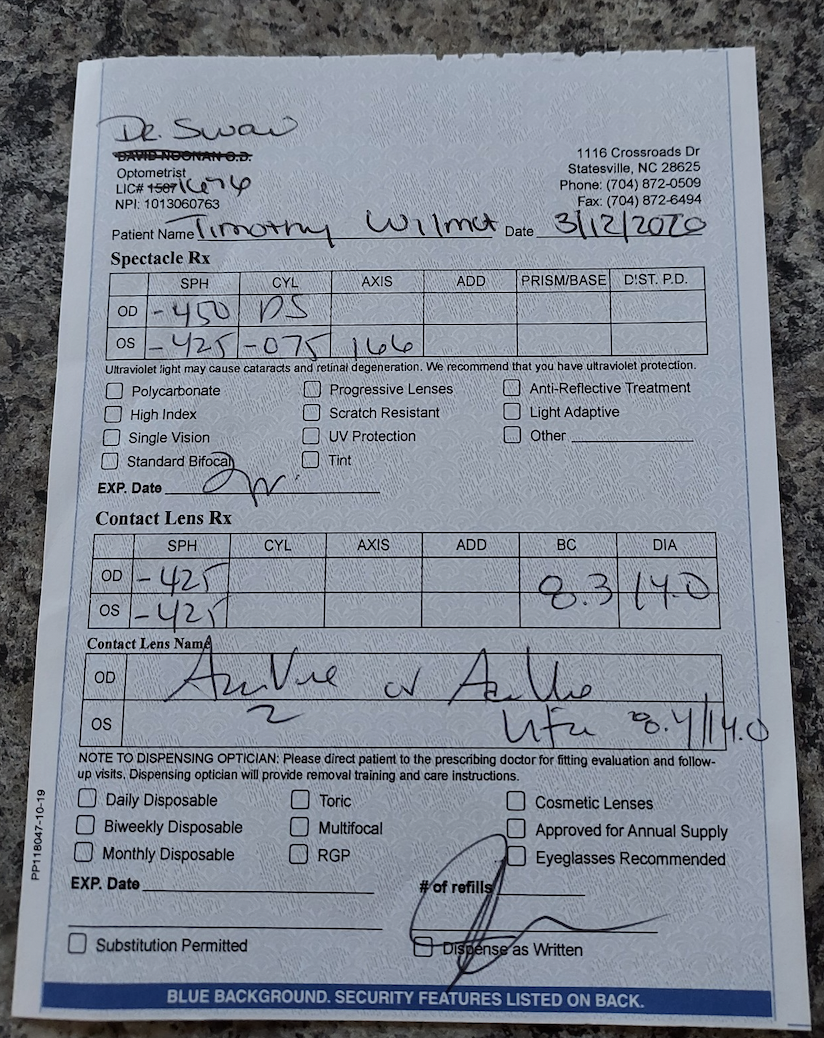 Dr. Swan
DAVID NOONAN O.D.
Optometrist
LIC# 1587
NPI: 1013060763
1116 Crossroads Dr
Statesville, NC 28625
Phone: (704) 872-0509
Fax: (704) 872-6494
Patient Name Timothy Wilmot Date 3/12/2020
Spectacle Rx
SPH CYL AXIS ADD PRISM/BASE DIST. P.D.
OD -450 DS
OS -425 -075 166
Ultraviolet light may cause cataracts and retinal degeneration. We recommend that you have ultraviolet protection.
Polycarbonate Progressive Lenses Anti-Reflective Treatment
High Index Scratch Resistant Light Adaptive
Single Vision UV Protection Other
Standard Bifocal Tint
EXP. Date
Contact Lens Rx
SPH CYL AXIS ADD BC DIA
OD -425 8.3 14.0
OS -425
Contact Lens Name
OD or
OS 2 8.4/14.0
NOTE TO DISPENSING OPTICIAN: Please direct patient to the prescribing doctor for fitting evaluation and follow-
up visits. Dispensing optician will provide removal training and care instructions.
Daily Disposable Toric Cosmetic Lenses
Biweekly Disposable Multifocal Approved for Annual Supply
Monthly Disposable RGP Eyeglasses Recommended
EXP. Date # of refills
Substitution Permitted Dispense as Written
BLUE BACKGROUND. SECURITY FEATURES LISTED ON BACK.
PP118047-10-19